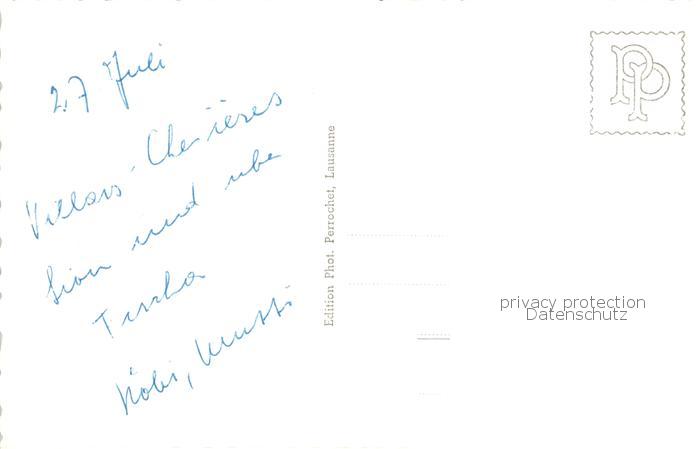 27 Juli
Villars-Chesières
Sion und
Turtka
Edition Phot. Perrochet, Lausanne
PP
privacy protection
Datenschutz